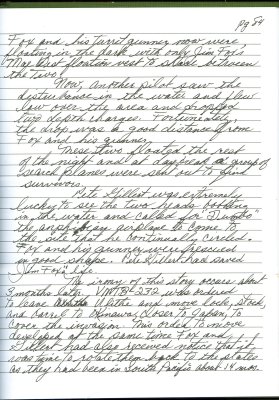 pg 84
Fox and his turret gunner now were
floating in the dark with only Jim Fox's
Mae West floatin vest to share between
the two!
Now, another pilot saw the
disturbance in the water and flew
low over the area and dropped
two depth charges. Fortunately,
the drop was a good distance from
Fox and his gunner.
These two floated the rest
of the night and at daybreak a group of
search planes were sent out to find
survivors.
Pete Gillert was extremely
lucky to see the two heads bobbing
in the water and called for "Dumbo"
the airplane to come to
the site that he continually circled.
Fox and his gunner were rescued
in good shape. Pete Gillert had saved
Jim Fox's life.
The irony of this story occurs about
3 months later. VMTB-232 was ordered
to leave Ulithi and move lock, stock,
and barrel to Okinawa, closer to Japan, to
cover the invasion. This order to move
developed at the same time Fox and
Gillert had also received notice that it
was time to rotate them back to the states
as they had been in South Pacific about 14 mos.